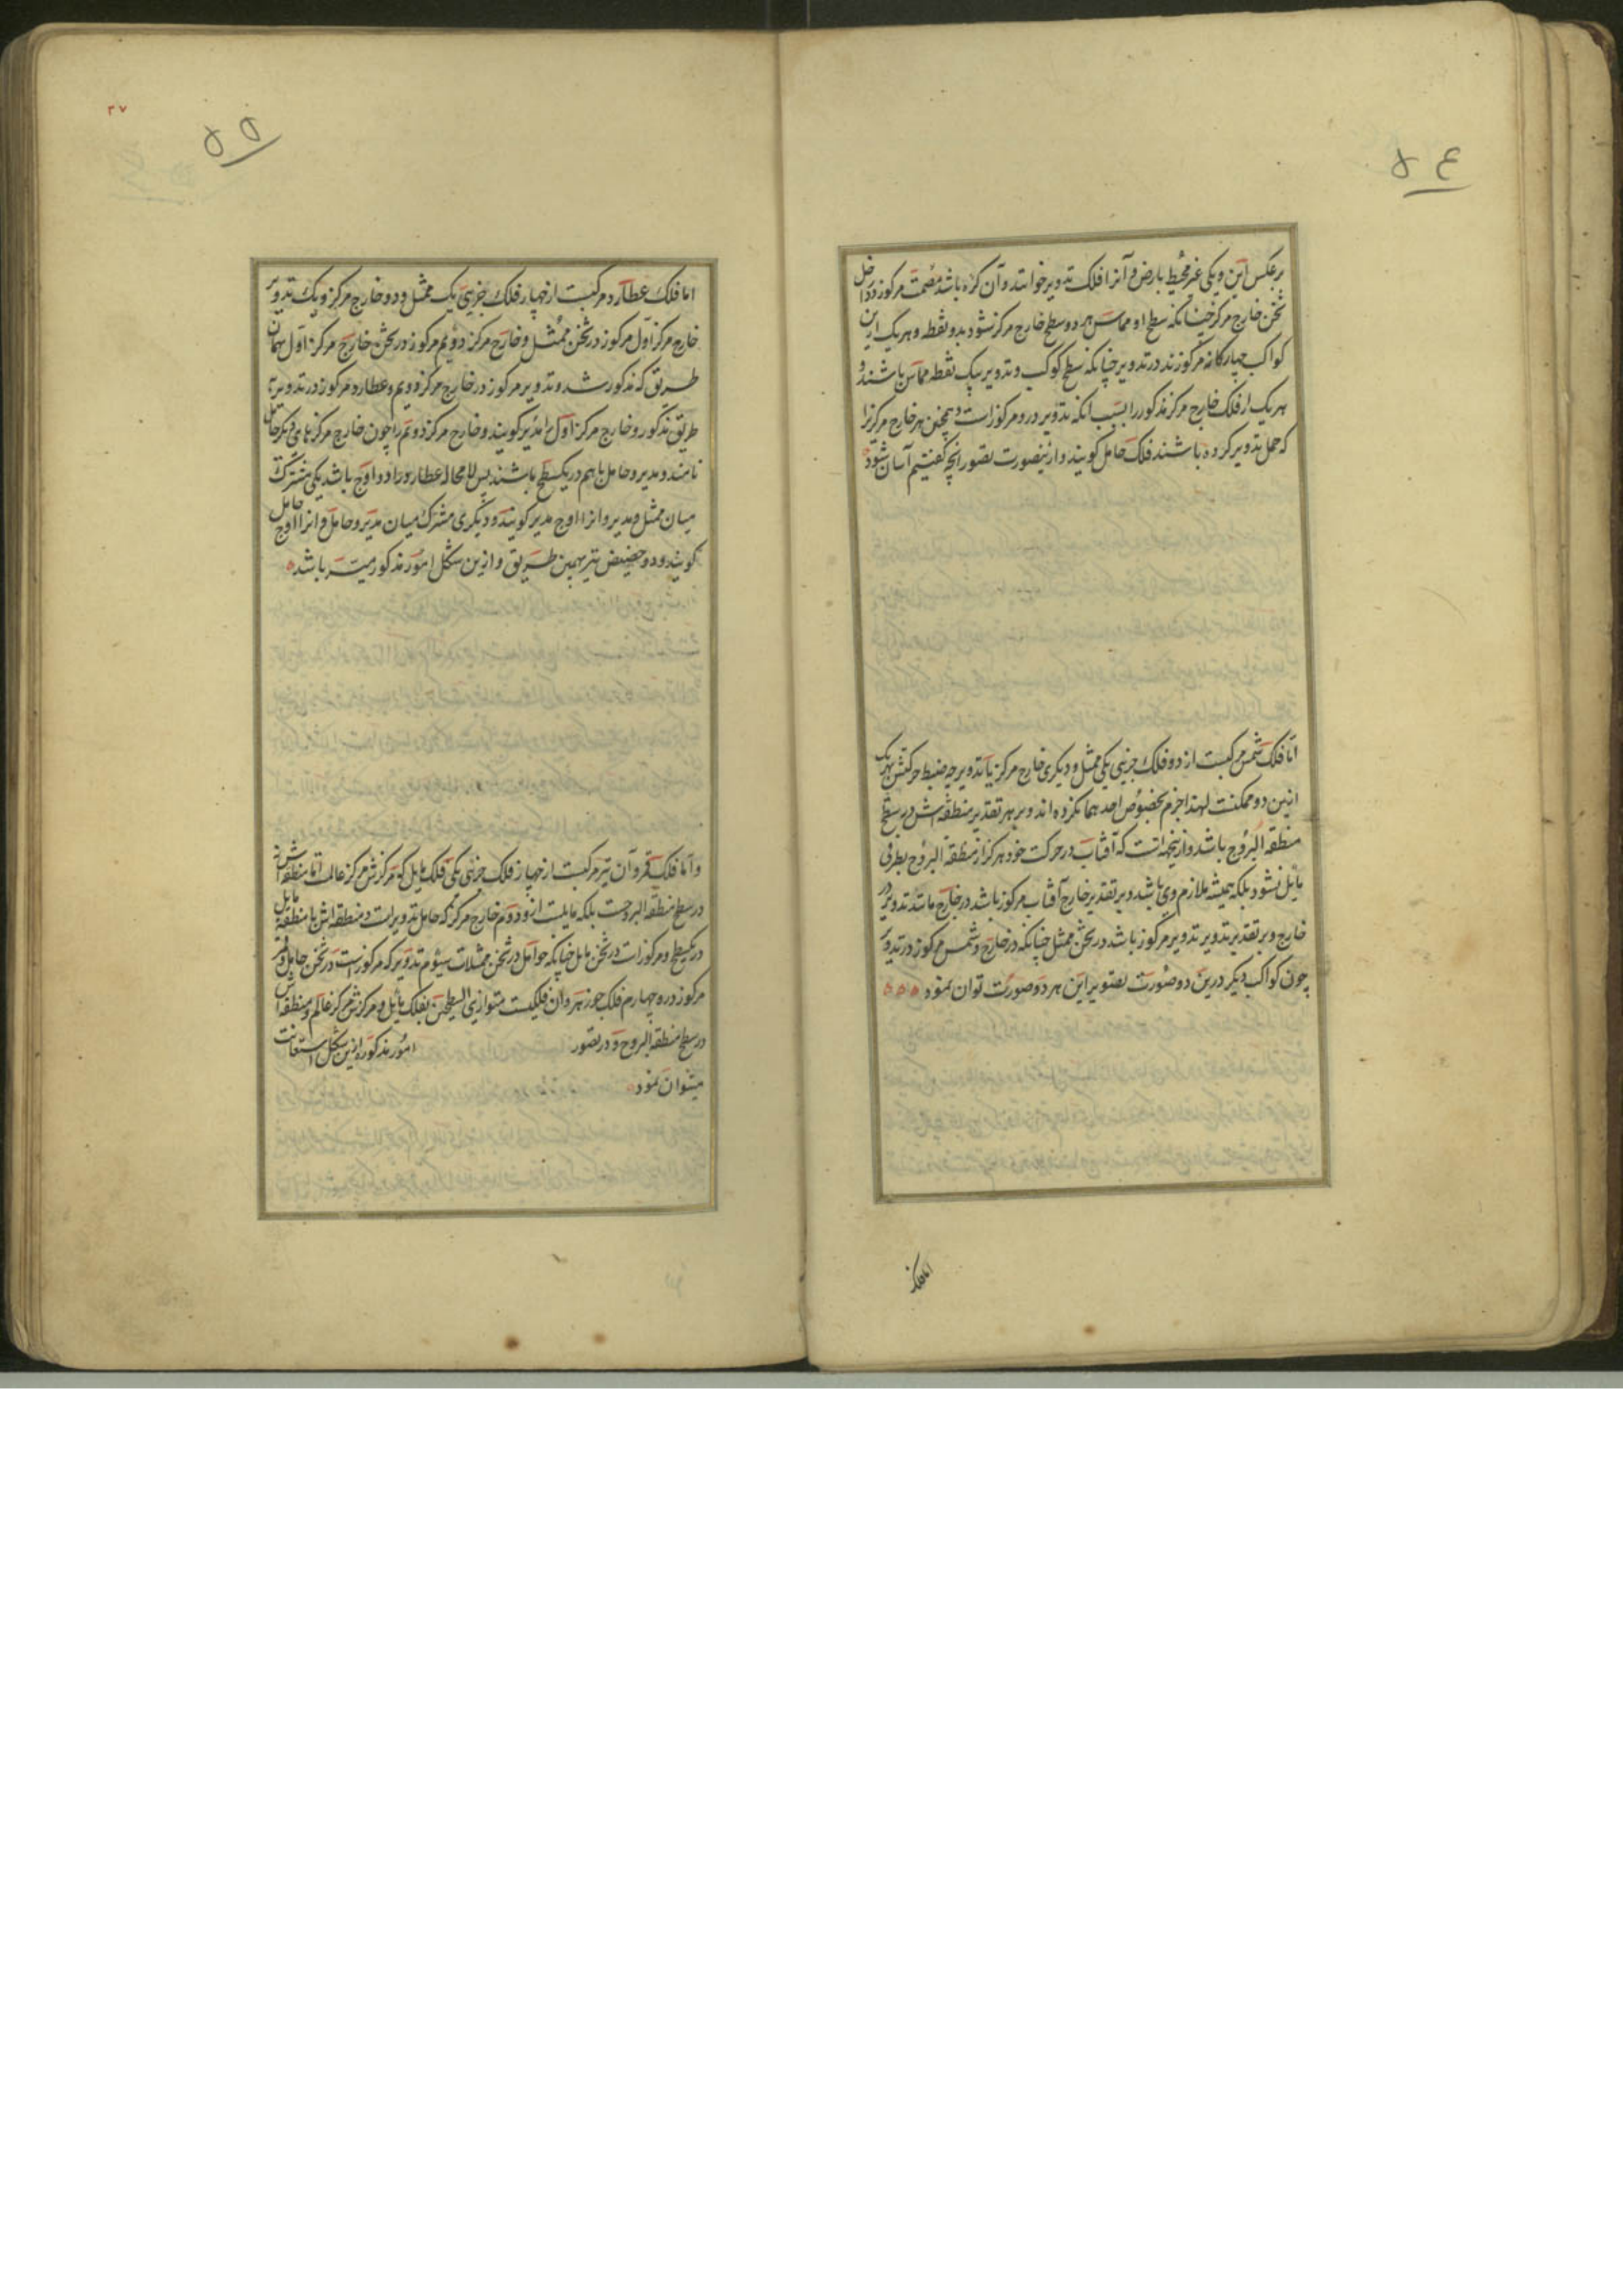 ۵۴
برعکس این و یکی غیر محیط بارض و آنرا فلک تدویر خوانند و آن کره باشد مصمت مرکوز در داخل
ثخن خارج مرکز چنانکه سطح او مماس هر دو سطح خارج مرکز شود بدو نقطه و هر یک ازین
کواکب چهارکانه مرکوزند در تدویر چنانکه سطح کوکب و تدویر بیک نقطه مماس باشند و
هر یک از فلک خارج مرکز مذکور را بسبب انکه تدویر درو مرکوز است و همچنین هر خارج مرکز را
که حمل تدویر کرده باشند فلک حامل کویند و ازینصورت تصور انچه کفتیم آسان شود
اما فلک شمس مرکبست از دو فلک جزئی یکی ممثل و دیکری خارج مرکز یا تدویر چه ضبط حرکتش بهریک
ازین دو ممکنست لهذا جزم بخصوص احدهما نکرده اند و بر هر تقدیر منطقه اش در سطح
منطقة البروج باشد و ازینجهتست که آفتاب در حرکت خود هرکز از منطقة البروج بطرفی
مایل نشود بلکه همیشه ملازم وی باشد و بر تقدیر خارج آفتاب مرکوز باشد در خارج مانند تدویر در
خارج و بر تقدیر تدویر تدویر مرکوز باشد در ثخن ممثل چنانکه در خارج و شمس مرکوز در تدویر
چون کواکب دیکر درین دو صورت تصویر این هر دو صورت توان نمود
اما فلک
۳۷
۵۵
اما فلک عطارد مرکبست از چهار فلک جزیی یک ممثل و دو خارج مرکز و یک تدویر
خارج مرکز اول مرکوز در ثخن ممثل و خارج مرکز دویم مرکوز در ثخن خارج مرکز اول بهمان
طریق که مذکور شد و تدویر مرکوز در خارج مرکز دویم و عطارد مرکوز در تدویر به
طریق مذکور و خارج مرکز اول را مدیر کویند و خارج مرکز دویم را چون خارج مرکزهای دیکر حامل
نامند و مدیر و حامل باهم در یکسطح باشند پس لا محاله عطارد را دو اوج باشد یکی مشترک
میان ممثل و مدیر و انرا اوج مدیر کویند و دیکری مشترک میان مدیر و حامل و انرا اوج حامل
کویند و دو حضیض نیز بهمین طریق و ازین شکل امور مذکور میسر باشد
و اما فلک قمر و آن نیز مرکبست از چهار فلک جزئی یکی فلک مایل که مرکزش مرکز عالمست اما منطقه اش نه
در سطح منطقة البروجست بلکه مایلست ازو دوم خارج مرکز که حامل تدویر است و منطقه اش با منطقه مایل
در یکسطح و مرکوز است در ثخن مایل چنانکه حوامل در ثخن ممثلات سیوم تدویر که مرکوز است در ثخن حامل و قمر
مرکوز درو چهارم فلک جوزهر و ان فلکیست متوازی السطحین بفلک مایل و مرکزش مرکز عالم و منطقه اش
در سطح منطقة البروج و در تصور امور مذکوره ازین شکل استعانت
میتوان نمود